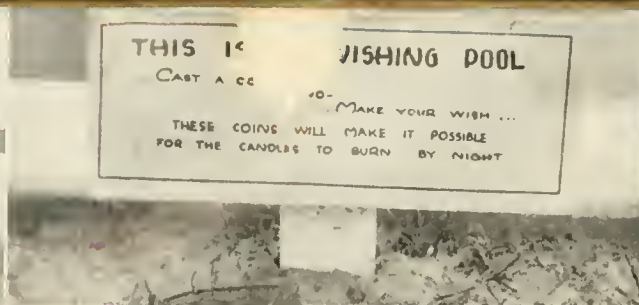 THIS IS WISHING POOL
CAST A
MAKE YOUR WISH ...
THESE COINS WILL MAKE IT POSSIBLE
FOR THE CANDLES TO BURN BY NIGHT